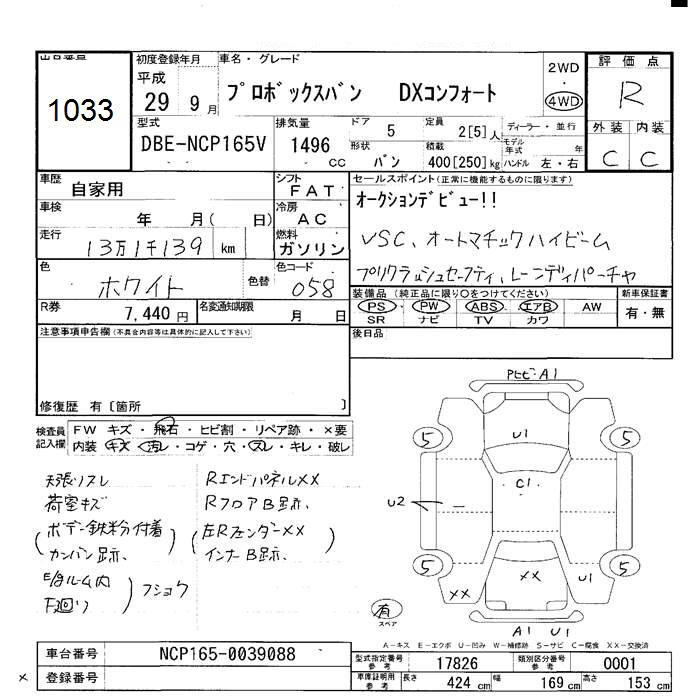 出品番号
1033
初度登録年月
平成
29 9 月
車名・グレード
プロボックスバン DXコンフォート
2WD
・
4WD
評価点
R
外装 内装
C C
型式
DBE-NCP165V
排気量
1496
cc
ドア
5
形状
バン
定員
2[5] 人
積載
400[250] kg
ディーラー・並行
モデル年式 年
ハンドル 左・右
車歴
自家用
シフト
FAT
車検
年 月( 日)
冷房
AC
走行
13万1千139 km
燃料
ガソリン
色
ホワイト
色替
色コード
058
R券
7,440 円
名変通知期限
月 日
セールスポイント(正常に機能するものに限ります)
オークションデビュー!!
VSC、オートマチックハイビーム
プリクラッシュセーフティ、レーンディパーチャ
装備品(純正品に限り○をつけてください)
PS PW ABS エアB AW
SR ナビ TV カワ
新車保証書
有・無
後日品
注意事項申告欄(不具合内容等は具体的に記入して下さい)
修復歴 有〔箇所 〕
検査員記入欄
FW キズ・飛石・ヒビ割・リペア跡・×要
内装 キズ・汚レ・コゲ・穴・スレ・キレ・破レ
天張リスレ
荷室キズ
(ボデー鉄粉付着
カンバン跡、)
E/gルーム内
下廻り
)フショク
RエンドパネルXX
RフロアB跡、
(左RフェンダーXX
インナーB跡、)
Pヒビ・A1
U1
C1
U2
5
5
5
5
XX
XX
U1
A1 U1
有
スペア
A-キズ E-エクボ U-凹み W-補修跡 S-サビ C-腐食 XX-交換済
車台番号
NCP165-0039088
登録番号
×
型式指定番号
参考
17826
類別区分番号
参考
0001
車庫証明用
参考
長さ 424 cm
幅 169 cm
高さ 153 cm